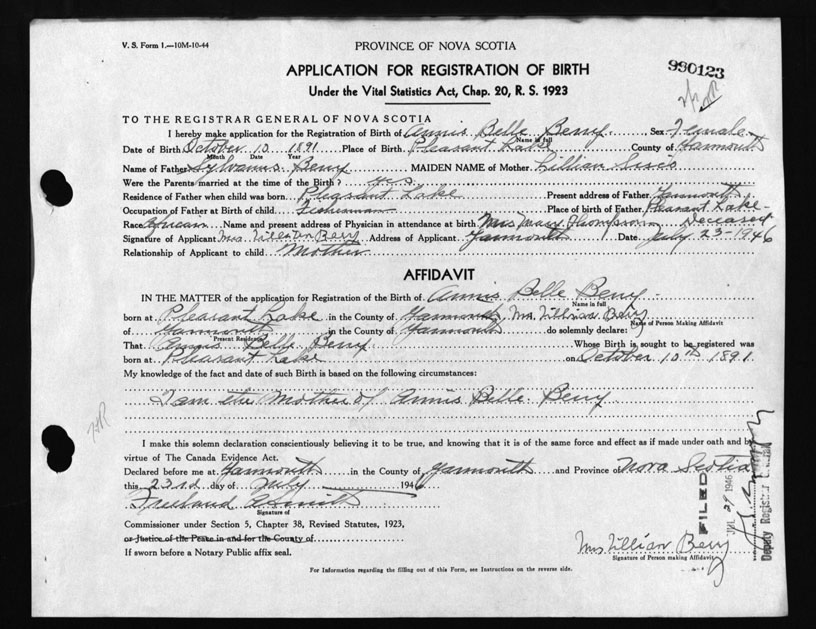 V. S. Form 1.—10M-10-44
PROVINCE OF NOVA SCOTIA
990123
APPLICATION FOR REGISTRATION OF BIRTH
Under the Vital Statistics Act, Chap. 20, R. S. 1923
TO THE REGISTRAR GENERAL OF NOVA SCOTIA
I hereby make application for the Registration of Birth of Annis Belle Berry, Sex Female
Name in full
Date of Birth October 10 1891 Place of Birth Pleasant Lake County of Yarmouth
Month Date Year
Name of Father Sylvanus Berry MAIDEN NAME of Mother Lillian
Were the Parents married at the time of the Birth? yes
Residence of Father when child was born Pleasant Lake Present address of Father Yarmouth
Occupation of Father at Birth of child Fisherman Place of birth of Father Pleasant Lake
Race African Name and present address of Physician in attendance at birth Mrs Mary Thompson Deceased
Signature of Applicant Mrs Lillian Berry Address of Applicant Yarmouth Date July 23-1946
Relationship of Applicant to child Mother
AFFIDAVIT
IN THE MATTER of the application for Registration of the Birth of Annis Belle Berry
Name in full
born at Pleasant Lake in the County of Yarmouth, Mrs. Lillian Berry
Name of Person Making Affidavit
of Yarmouth in the County of Yarmouth do solemnly declare:
Present Residence
That Annis Belle Berry Whose Birth is sought to be registered was
born at Pleasant Lake on October 10th 1891
My knowledge of the fact and date of such Birth is based on the following circumstances:
I am the Mother of Annis Belle Berry
I make this solemn declaration conscientiously believing it to be true, and knowing that it is of the same force and effect as if made under oath and by
virtue of The Canada Evidence Act.
Declared before me at Yarmouth in the County of Yarmouth and Province of Nova Scotia
this 23rd day of July 1946
Freeland
Signature of
Commissioner under Section 5, Chapter 38, Revised Statutes, 1923,
or Justice of the Peace in and for the County of
If sworn before a Notary Public affix seal.
Mrs Lillian Berry
Signature of Person making Affidavit
FILED
JUL 29 1946
Deputy Registrar General
For Information regarding the filling out of this Form, see Instructions on the reverse side.